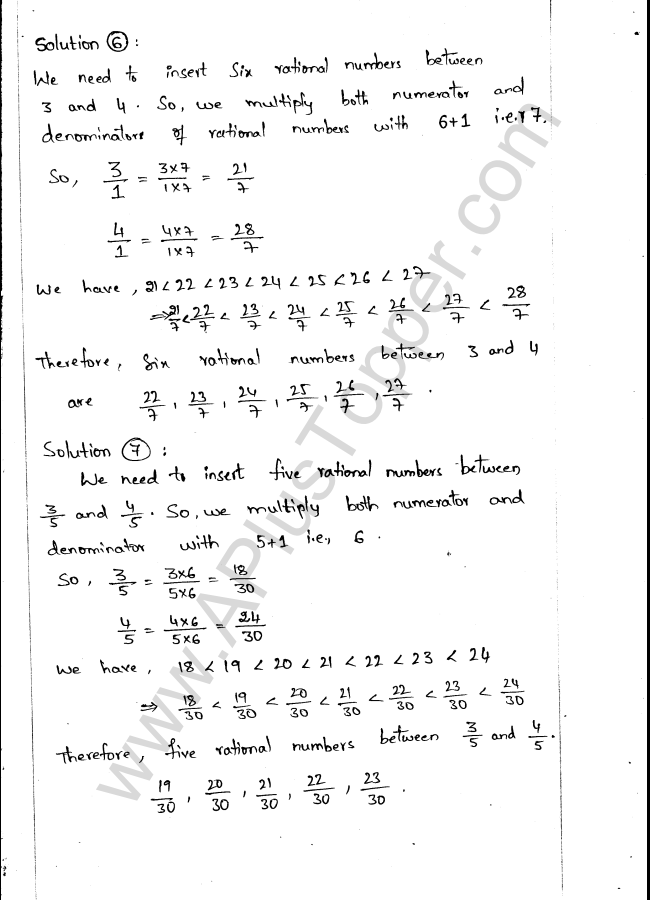 Solution ⑥ :
We need to insert Six rational numbers between
3 and 4 . So, we multiply both numerator and
denominators of rational numbers with 6+1 i.e., 7.
So, 3/1 = 3×7/1×7 = 21/7
4/1 = 4×7/1×7 = 28/7
We have , 21 < 22 < 23 < 24 < 25 < 26 < 27
⇒ 21/7 < 22/7 < 23/7 < 24/7 < 25/7 < 26/7 < 27/7 < 28/7
Therefore, Six rational numbers between 3 and 4
are 22/7 , 23/7 , 24/7 , 25/7 , 26/7 , 27/7 .
Solution ⑦ :
We need to insert five rational numbers between
3/5 and 4/5 . So, we multiply both numerator and
denominator with 5+1 i.e., 6 .
So , 3/5 = 3×6/5×6 = 18/30
4/5 = 4×6/5×6 = 24/30
We have , 18 < 19 < 20 < 21 < 22 < 23 < 24
⇒ 18/30 < 19/30 < 20/30 < 21/30 < 22/30 < 23/30 < 24/30
Therefore , five rational numbers between 3/5 and 4/5 .
19/30 , 20/30 , 21/30 , 22/30 , 23/30 .
www.APlusTopper.com